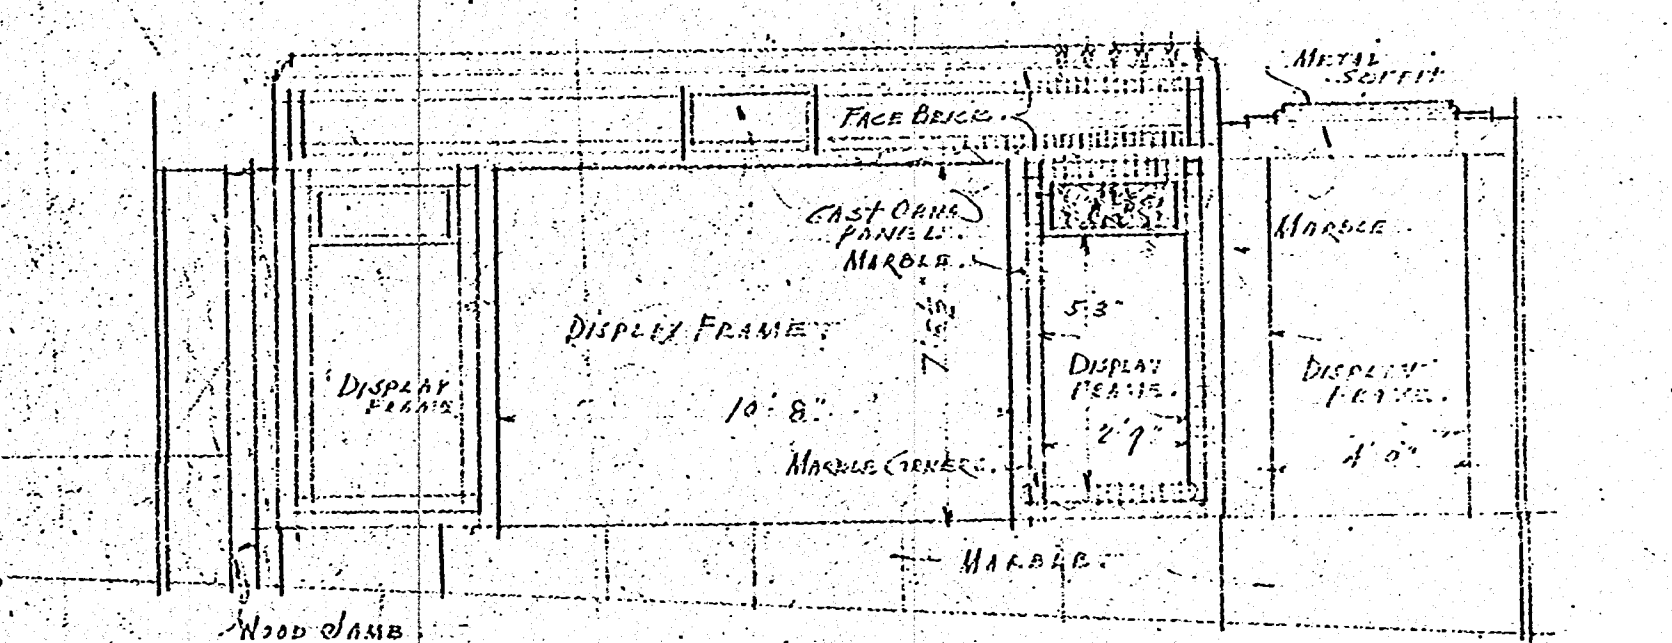 METAL
SOFFIT
FACE BRICK.
CAST ORNA
PANEL.
MARBLE.
MARBLE
DISPLAY FRAME.
7'
5'3"
DISPLAY
FRAME
DISPLAY
FRAME.
DISPLAY
FRAME.
10'-8"
2'7"
4'0"
MARBLE CORNER.
MARBLE.
WOOD JAMB.